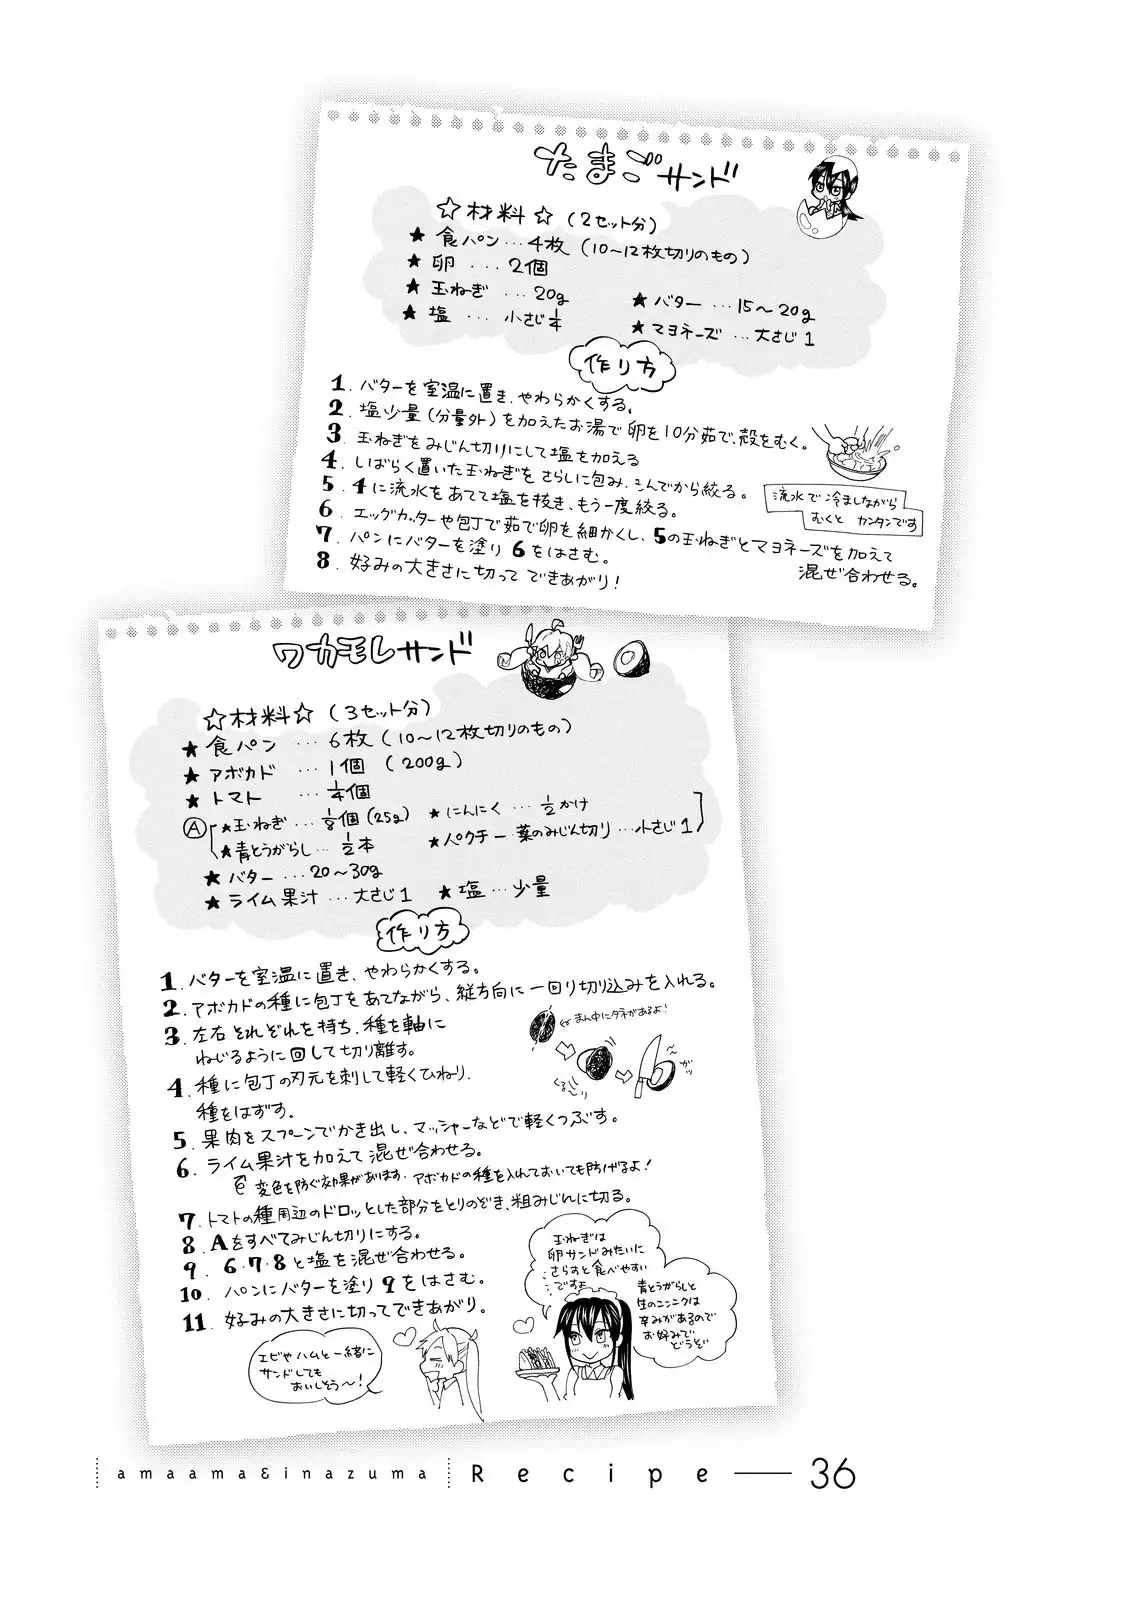 たまごサンド
☆材料☆(2セット分)
★食パン…4枚(10〜12枚切りのもの)
★卵 …2個
★玉ねぎ …20g
★塩 … 小さじ1/4
★バター …15〜20g
★マヨネーズ …大さじ1
作り方
1. バターを室温に置き、やわらかくする。
2. 塩少量(分量外)を加えたお湯で卵を10分茹で、殻をむく。
3. 玉ねぎをみじん切りにして塩を加える
4. しばらく置いた玉ねぎをさらしに包み、もんでから絞る。
5. 4に流水をあてて塩を抜き、もう一度絞る。
6. エッグカッターや包丁で茹で卵を細かくし、5の玉ねぎとマヨネーズを加えて
混ぜ合わせる。
7. パンにバターを塗り6をはさむ。
8. 好みの大きさに切って できあがり!
流水で冷ましながら
むくと カンタンです
ワカモレサンド
☆材料☆(3セット分)
★食パン …6枚(10〜12枚切りのもの)
★アボカド …1個 (200g)
★トマト …1/4個
Ⓐ
★玉ねぎ …1/8個(25g)
★青とうがらし…1/2本
★にんにく …1/2かけ
★パクチー 葉のみじん切り…小さじ1
★バター …20〜30g
★ライム果汁 …大さじ1
★塩…少量
作り方
1. バターを室温に置き、やわらかくする。
2. アボカドの種に包丁をあてながら、縦方向に一回り切り込みを入れる。
3. 左右それぞれを持ち、種を軸に
ねじるように回して切り離す。
4. 種に包丁の刃元を刺して軽くひねり、
種をはずす。
まん中にタネがあるよ!
くる〜り
ガッ
5. 果肉をスプーンでかき出し、マッシャーなどで軽くつぶす。
6. ライム果汁を加えて混ぜ合わせる。
変色を防ぐ効果があります。アボカドの種を入れておいても防げるよ!
7. トマトの種周辺のドロッとした部分をとりのぞき、粗みじんに切る。
8. Aをすべてみじん切りにする。
9. 6・7・8と塩を混ぜ合わせる。
10. パンにバターを塗り9をはさむ。
11. 好みの大きさに切ってできあがり。
玉ねぎは
卵サンドみたいに
さらすと食べやすい
ですよ
青とうがらしと
生のニンニクは
辛みがあるので
お好みで
どうぞ
エビやハムと一緒に
サンドしても
おいしそう〜!
amaama&inazuma
Recipe 36